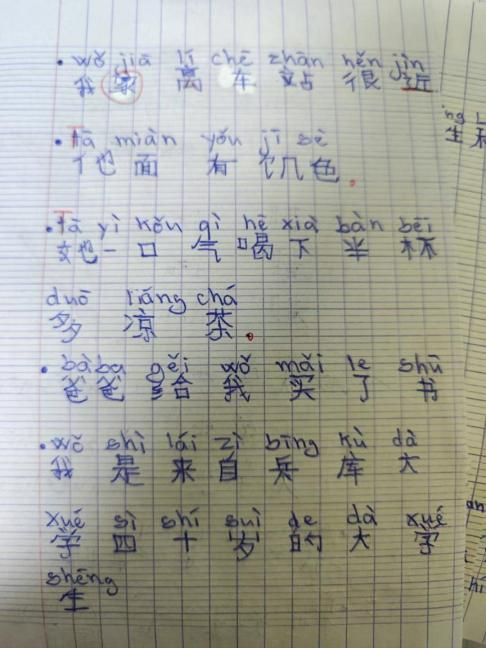 • wǒ jiā lí chē zhàn hěn jìn
我 家 离 车 站 很 近
• Tā miàn yǒu jī sè
他 面 有 饥 色 。
• Tā yì kǒu qì hē xià bàn bēi
她 一 口 气 喝 下 半 杯
duō liáng chá
多 凉 茶 。
• bàba gěi wǒ mǎi le shū
爸爸 给 我 买 了 书
• wǒ shì lái zì bīng kù dà
我 是 来 自 兵 库 大
xué sì shí suì de dà xué
学 四 十 岁 的 大 学
shēng
生